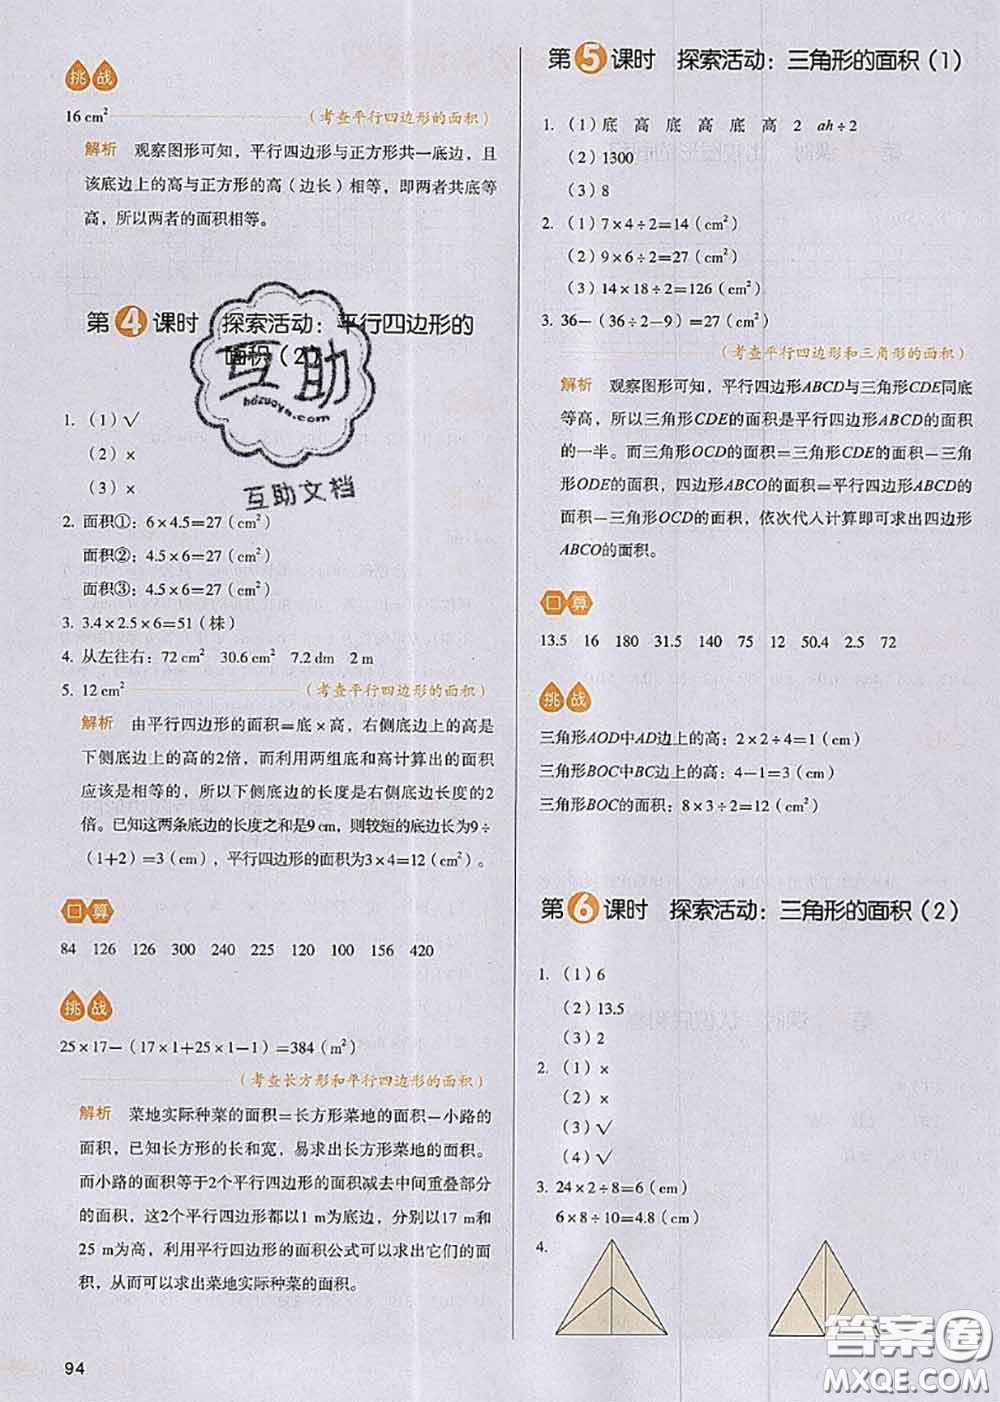 挑战
16 cm² (考查平行四边形的面积)
解析 观察图形可知，平行四边形与正方形共一底边，且
该底边上的高与正方形的高（边长）相等，即两者共底等
高，所以两者的面积相等。
第4课时 探索活动：平行四边形的
面积（2）
1. （1）√
（2）×
（3）×
2. 面积①：6×4.5=27（cm²）
面积②：4.5×6=27（cm²）
面积③：4.5×6=27（cm²）
3. 3.4×2.5×6=51（株）
4. 从左往右：72 cm² 30.6 cm² 7.2 dm 2 m
5. 12 cm² (考查平行四边形的面积)
解析 由平行四边形的面积=底×高，右侧底边上的高是
下侧底边上的高的2倍，而利用两组底和高计算出的面积
应该是相等的，所以下侧底边的长度是右侧底边长度的2
倍。已知这两条底边的长度之和是9 cm，则较短的底边长为9÷
（1+2）=3（cm），平行四边形的面积为3×4=12（cm²）。
口算
84 126 126 300 240 225 120 100 156 420
挑战
25×17－（17×1+25×1－1）=384（m²）
(考查长方形和平行四边形的面积)
解析 菜地实际种菜的面积=长方形菜地的面积－小路的
面积，已知长方形的长和宽，易求出长方形菜地的面积。
而小路的面积等于2个平行四边形的面积减去中间重叠部分
的面积，这2个平行四边形都以1 m为底边，分别以17 m和
25 m为高，利用平行四边形的面积公式可以求出它们的面
积，从而可以求出菜地实际种菜的面积。
94
第5课时 探索活动：三角形的面积（1）
1. （1）底 高 底 高 底 高 2 ah÷2
（2）1300
（3）8
2. （1）7×4÷2=14（cm²）
（2）9×6÷2=27（cm²）
（3）14×18÷2=126（cm²）
3. 36－（36÷2－9）=27（cm²）
(考查平行四边形和三角形的面积)
解析 观察图形可知，平行四边形ABCD与三角形CDE同底
等高，所以三角形CDE的面积是平行四边形ABCD的面积
的一半。而三角形OCD的面积=三角形CDE的面积－三角
形ODE的面积，四边形ABCO的面积=平行四边形ABCD的
面积－三角形OCD的面积，依次代入计算即可求出四边形
ABCO的面积。
口算
13.5 16 180 31.5 140 75 12 50.4 2.5 72
挑战
三角形AOD中AD边上的高：2×2÷4=1（cm）
三角形BOC中BC边上的高：4－1=3（cm）
三角形BOC的面积：8×3÷2=12（cm²）
第6课时 探索活动：三角形的面积（2）
1. （1）6
（2）13.5
（3）2
2. （1）×
（2）×
（3）√
（4）√
3. 24×2÷8=6（cm）
6×8÷10=4.8（cm）
4.
互助
hdzuoye.com
互助文档
答案圈
MXQE.COM